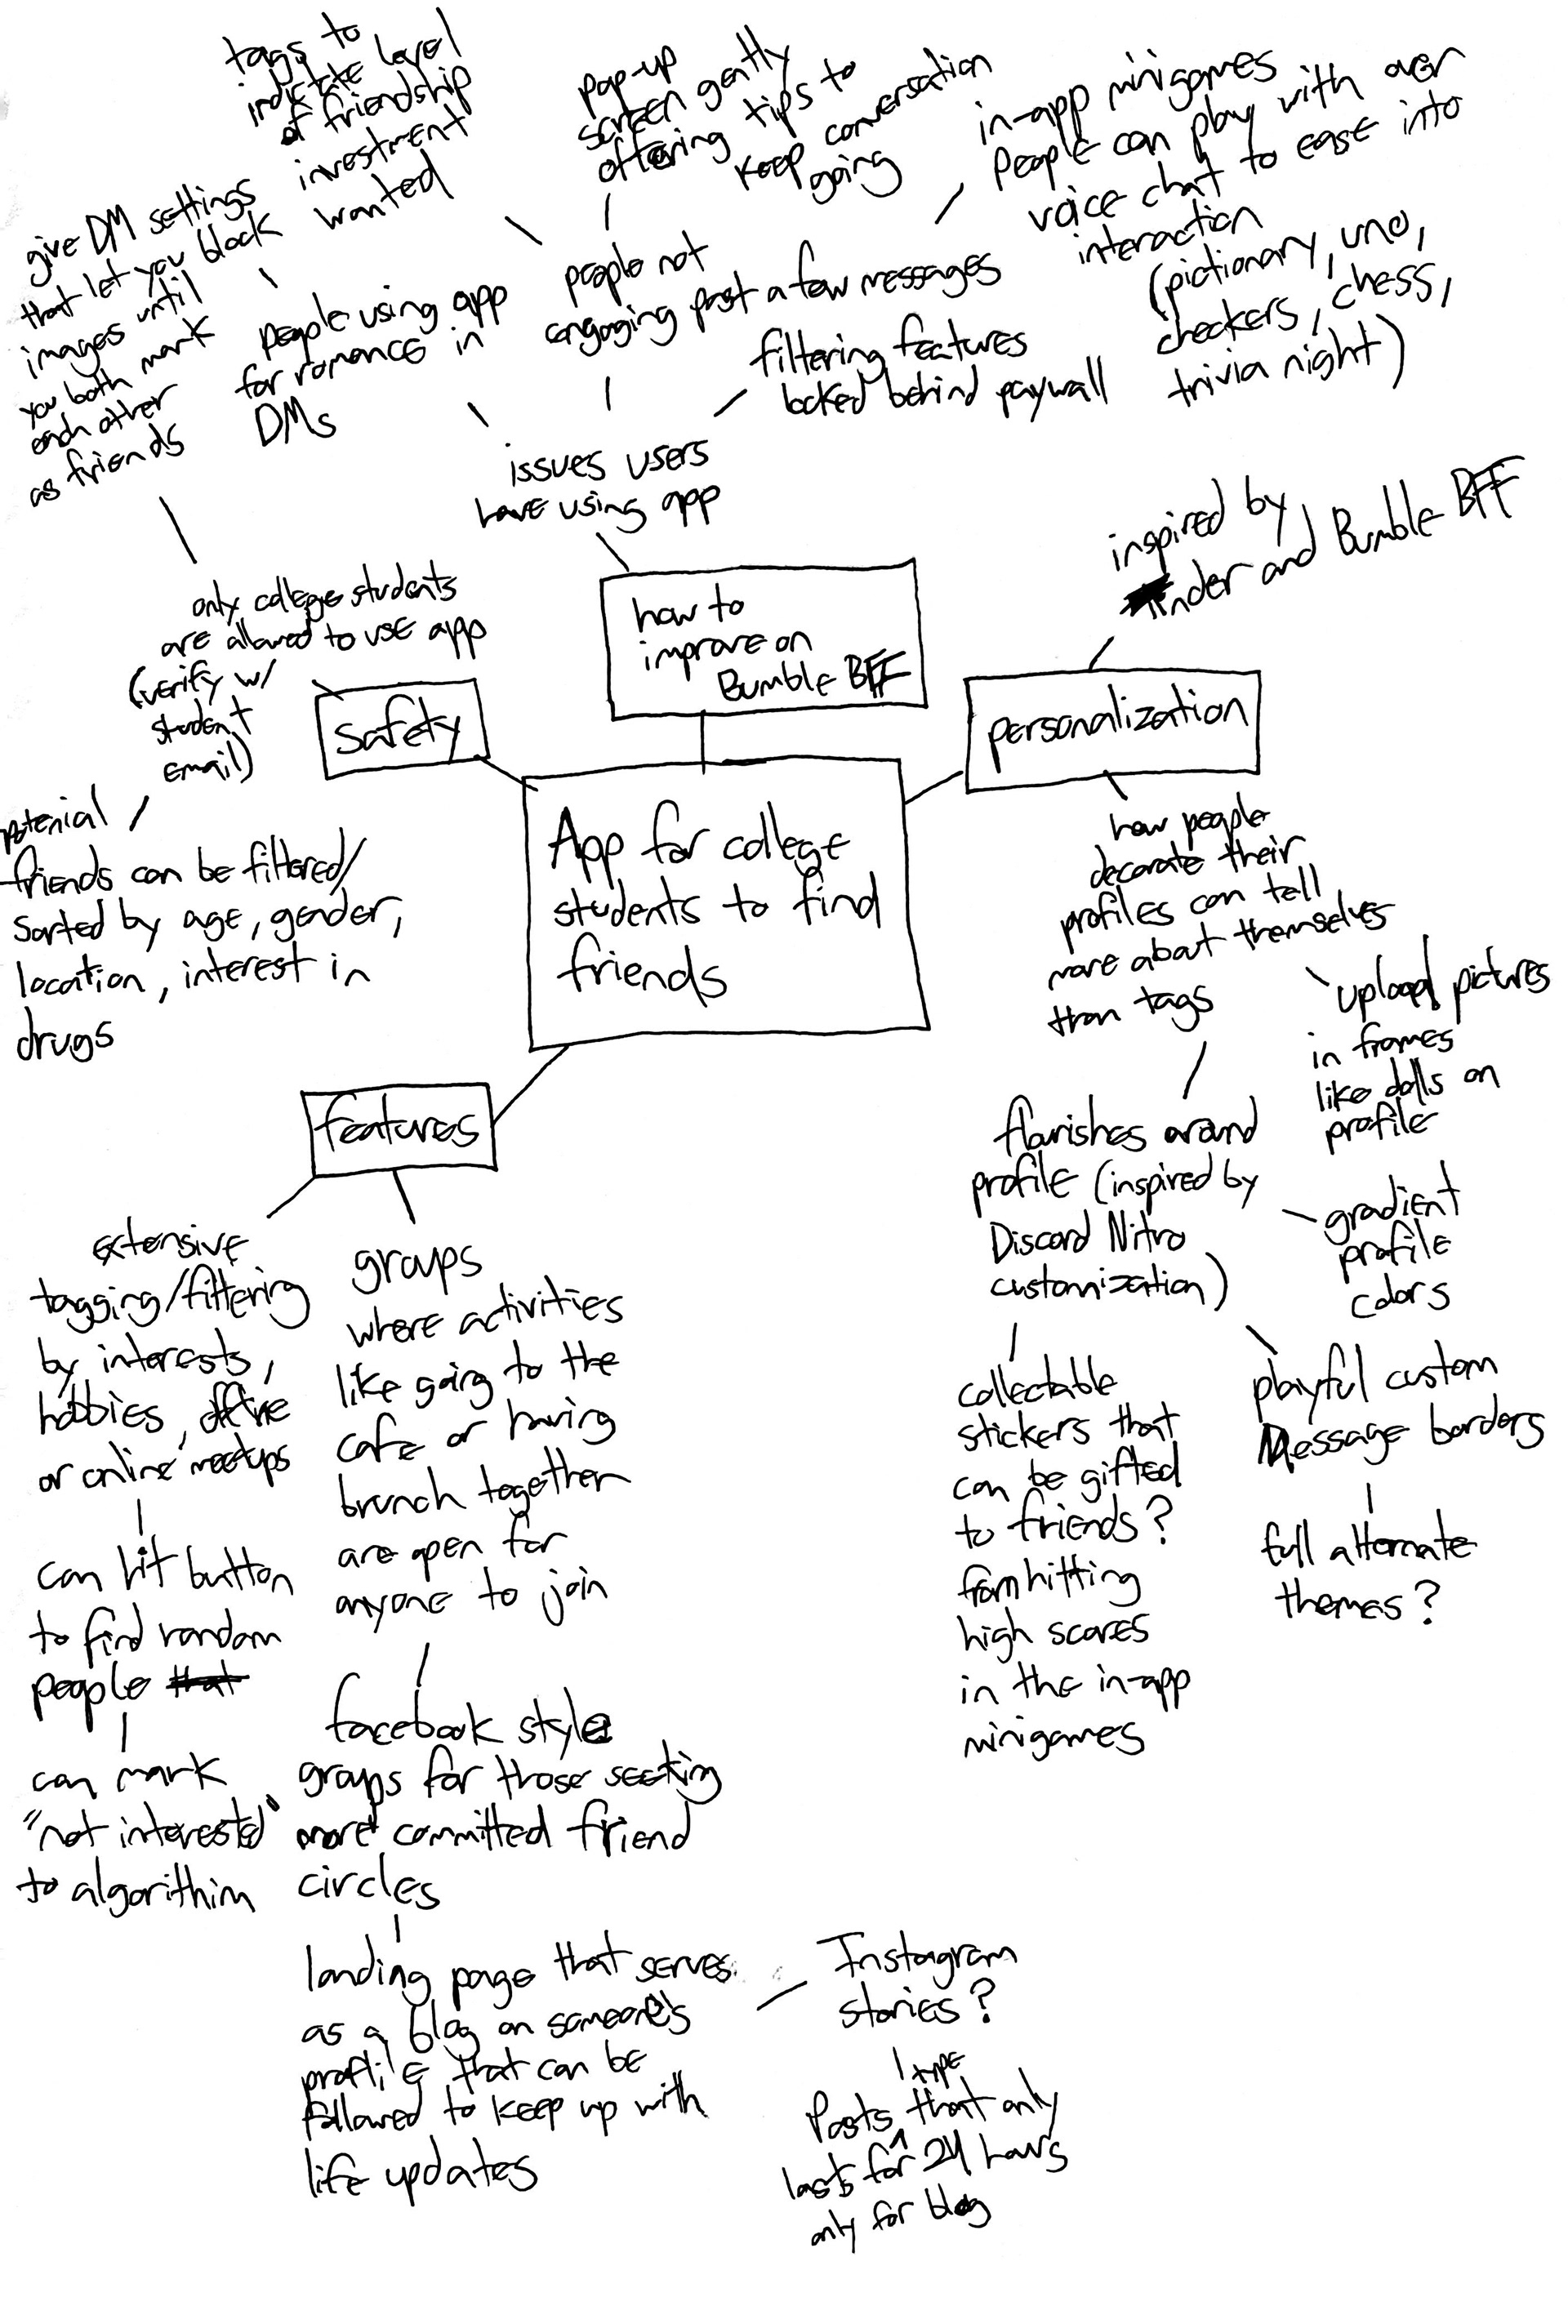 tags to
indicate level
of friendship
investment
wanted
pop-up
screen gently
offering tips to
keep conversation
going
in-app minigames
people can play with over
voice chat to ease into
interaction
(pictionary, uno,
checkers, chess,
trivia night)
give DM settings
that let you block
images until
you both mark
each other
as friends
people using app
for romance in
DMs
people not
engaging past a few messages
filtering features
locked behind paywall
issues users
have using app
inspired by
Tinder and Bumble BFF
only college students
are allowed to use app
(verify w/
student
email)
how to
improve on
Bumble BFF
safety
personalization
App for college
students to find
friends
potenial
friends can be filtered/
sorted by age, gender,
location, interest in
drugs
how people
decorate their
profiles can tell
more about themselves
than tags
upload pictures
in frames
like dolls on
profile
features
flourishes around
profile (inspired by
Discord Nitro
customization)
gradient
profile
colors
extensive
tagging/filtering
by interests,
hobbies, offline
or online meetups
groups
where activities
like going to the
cafe or having
brunch together
are open for
anyone to join
collectable
stickers that
can be gifted
to friends?
from hitting
high scores
in the in-app
minigames
playful custom
message borders
full alternate
themes?
can hit button
to find random
people that
can mark
"not interested"
to algorithim
facebook style
groups for those seeking
more committed friend
circles
landing page that serves
as a blog on someone's
profile that can be
followed to keep up with
life updates
Instagram
stories?
type
Posts ^ that only
lasts for 24 hours
only for blog